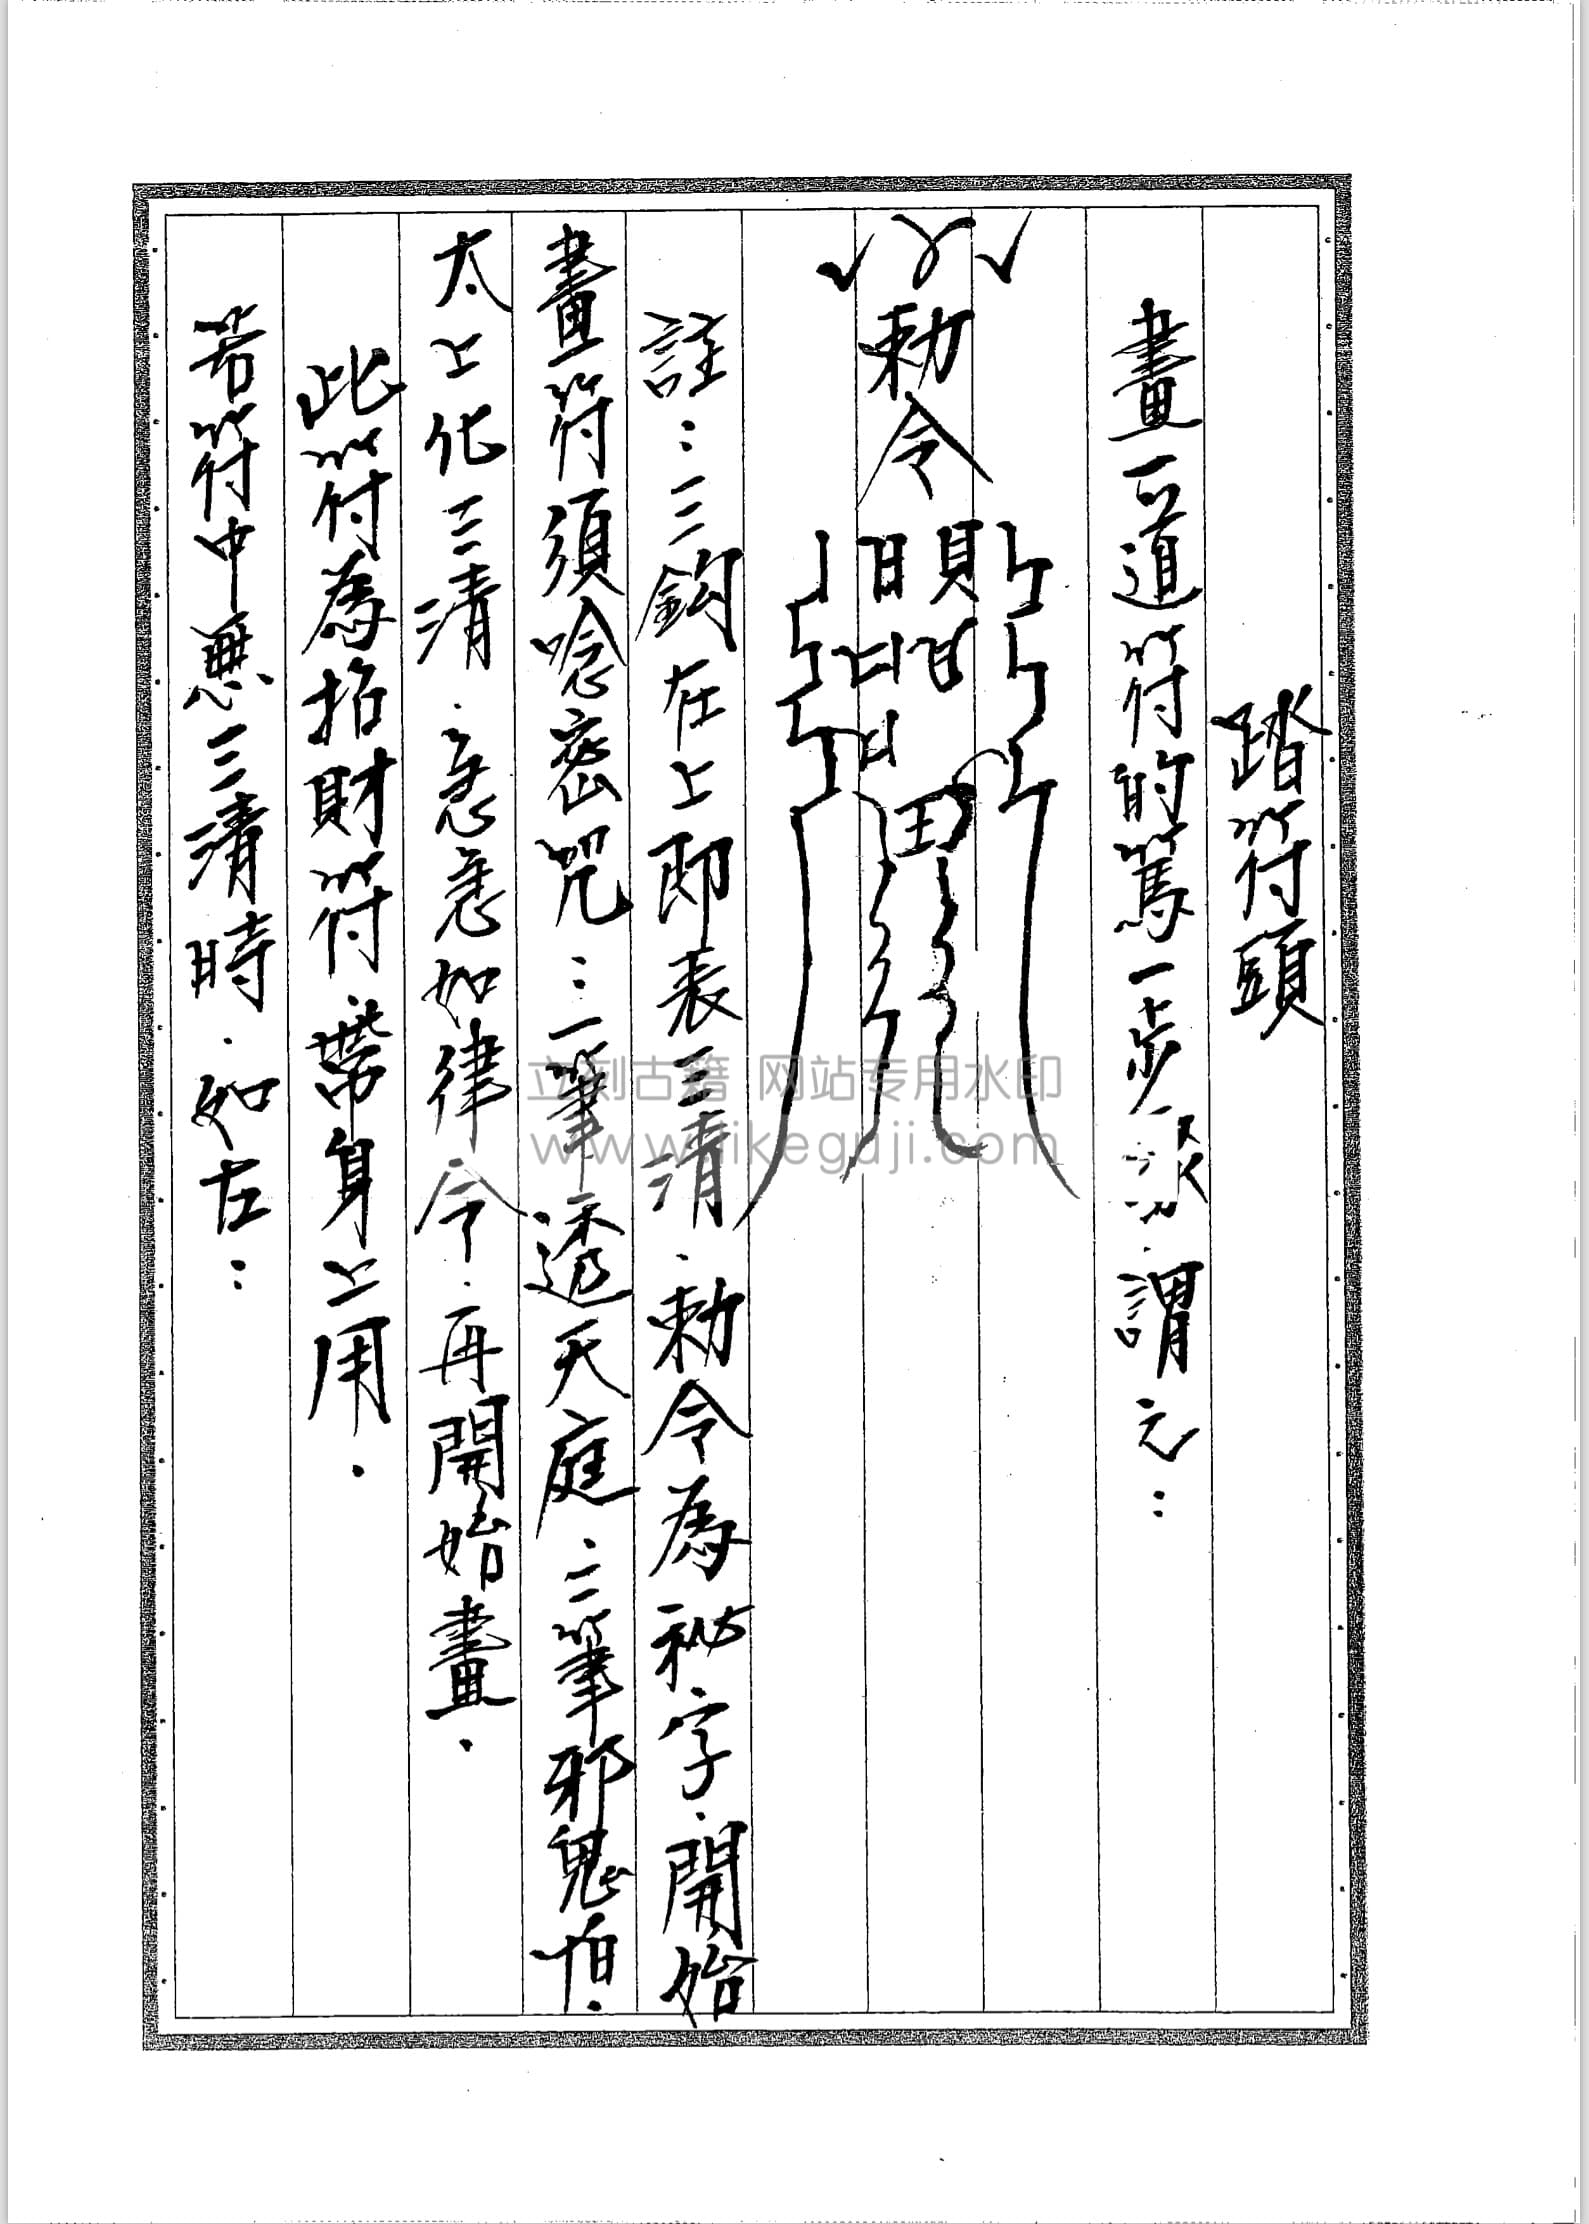 踏符頭
畫一道符的第一步驟.謂之：
勅令
註：三鈎在上即表三清.勅令為祕字.開始
畫符須唸密咒：一筆透天庭.二筆邪鬼怕.
太上化三清.急急如律令.再開始畫.
此符為招財符.帶身上用.
若符中無三清時.如左：
立刻古籍 网站专用水印
www.likeguji.com